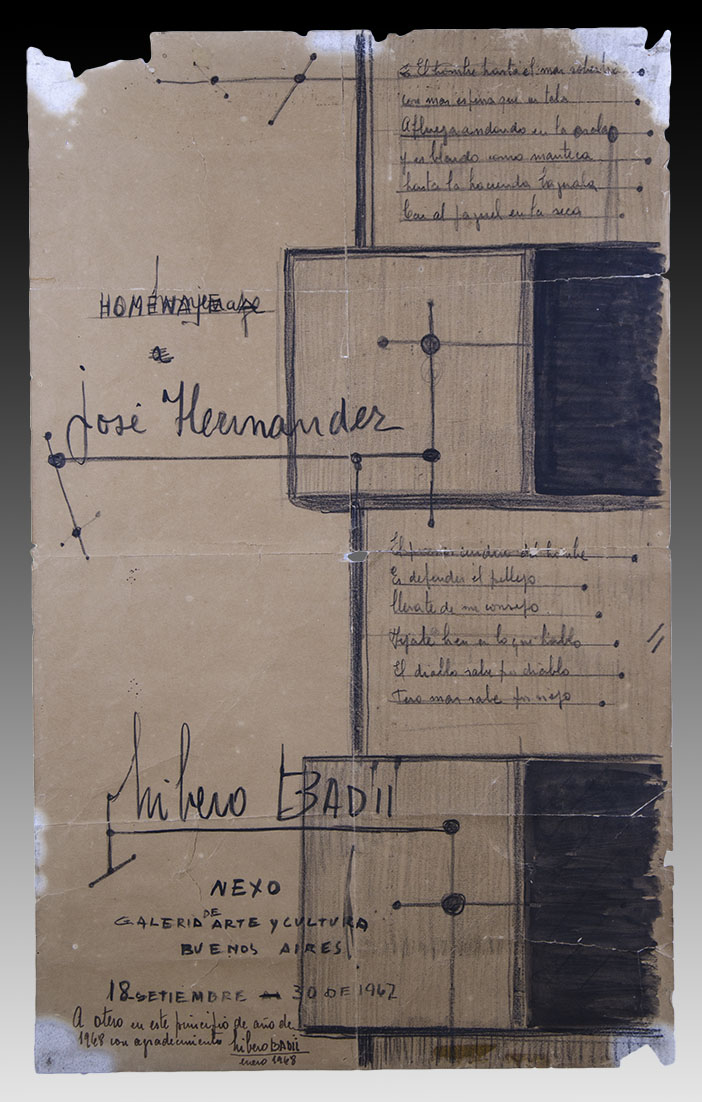 El hombre hasta el mas soberbio
con mas espina que un tala
Aflueja andando en la mala
y es blando como manteca
hasta la hacienda baguala
Cai al jaguel en la seca
HOMENAJE A
a
José Hernandez
El primer cuidao del hombre
Es defender el pellejo
llevate de mi consejo
Fijate bien en lo que hablo
El diablo sabe por diablo
Pero mas sabe por viejo
libero BADII
NEXO
GALERIA DE ARTE Y CULTURA
BUENOS AIRES
18 SETIEMBRE - 30 DE 1967
A otero en este principio de año de
1968 con agradecimiento libero BADII
enero 1968